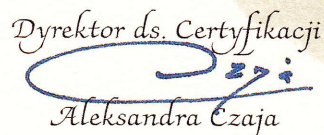 Dyrektor ds. Certyfikacji
Aleksandra Czaja